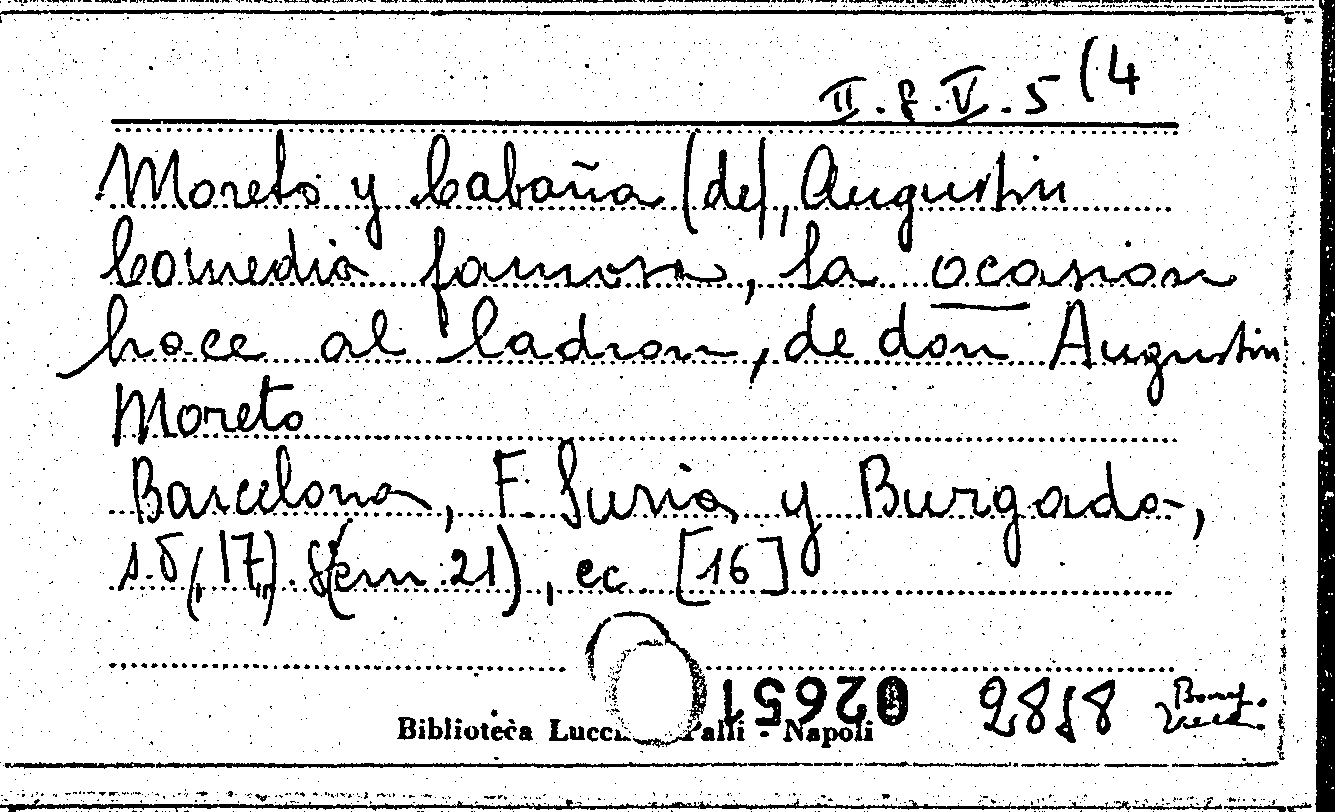 II. 8. V. 5 (4
Moreto y Cabaña (de), Augustin
Comedia famosa, la ocasion
hace al ladron, de don Augustin
Moreto
Barcelona, F. Suria y Burgada,
s.d., (17,,). 8 (cm 21), cc. [16]
02651 2818
Biblioteca Palli - Napoli